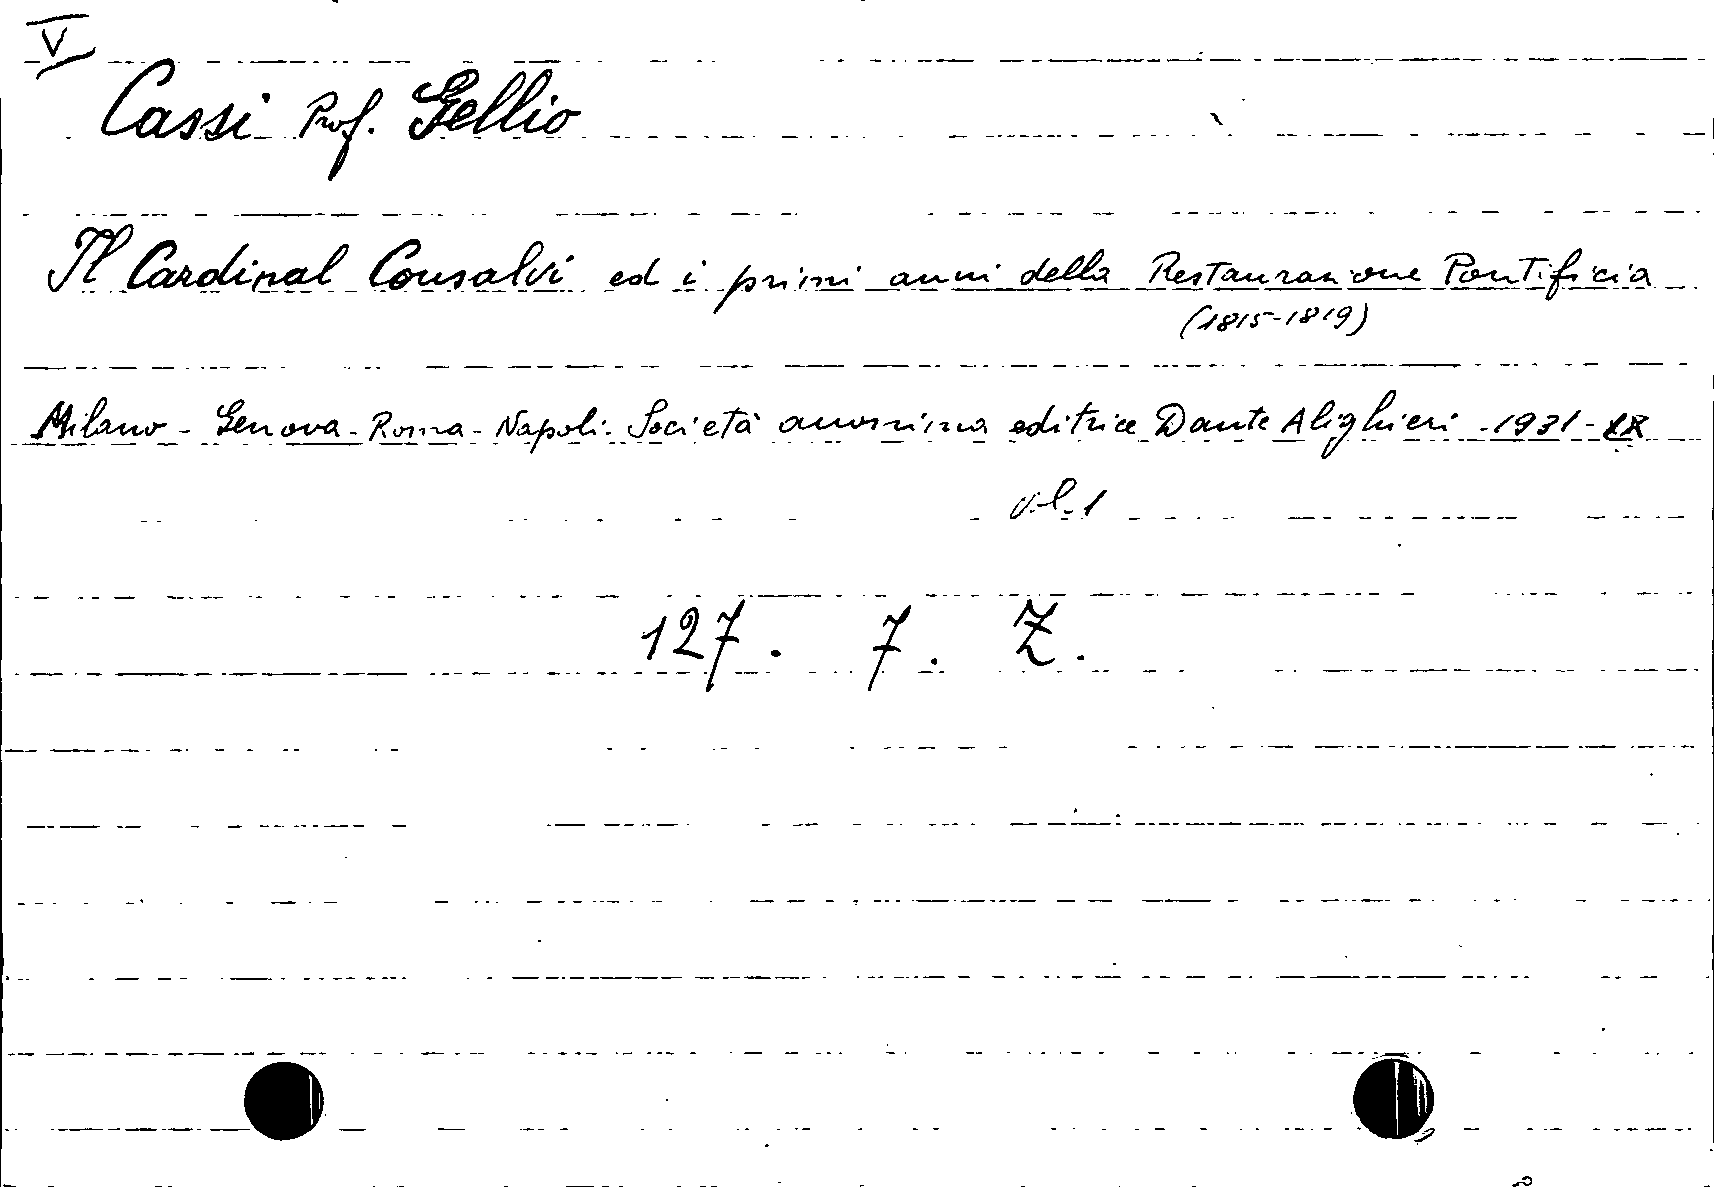 V
Cassi Prof. Gellio
Il Cardinal Consalvi ed i primi anni della Restaurazione Pontificia
(1815-1819)
Milano - Genova - Roma - Napoli - Società anonima editrice Dante Alighieri - 1931 - IX
vol. 1
127. 7. Z.